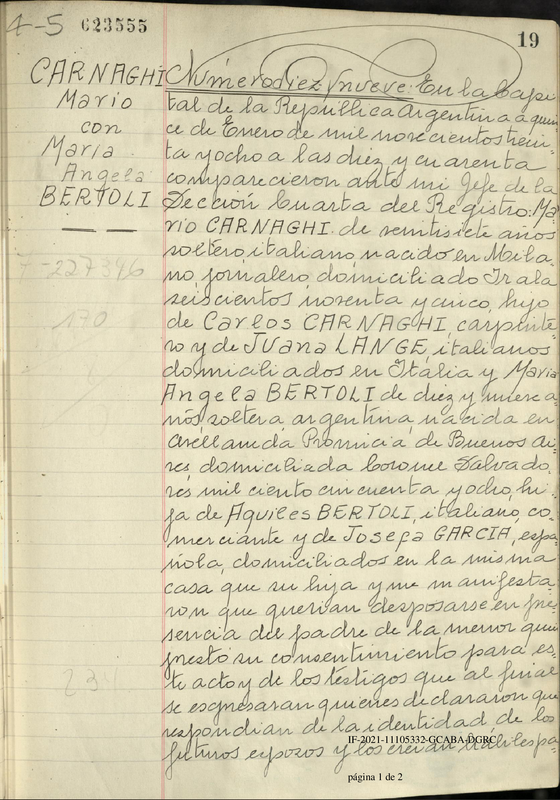 4-5 623555
19
CARNAGHI
Mario
con
Maria
Angela
BERTOLI
7-227346
170
Número diez y nueve: En la Capi
tal de la República Argentina a quin
ce de Enero de mil novecientos trein
ta y ocho a las diez y cuarenta
comparecieron ante mi Jefe de la
Sección Cuarta del Registro: Ma
rio CARNAGHI de veintisiete años
soltero, italiano, nacido en Mila
no, jornalero, domiciliado Irala
seiscientos noventa y cinco, hijo
de Carlos CARNAGHI, carpinte
ro y de JUana LANGE, italianos
domiciliados en Italia y Maria
Angela BERTOLI de diez y nueve a
ños, soltera, argentina, nacida en
Avellaneda Provincia de Buenos Ai
res, domiciliada Coronel Salvado
res mil ciento cincuenta y ocho, hi
ja de Aquiles BERTOLI, italiano, co
merciante y de Josefa GARCIA, espa
ñola, domiciliados en la misma
casa que su hija y me manifesta
ron que querian desposarse en pre
sencia del padre de la menor quien
prestó su consentimiento para es
te acto y de los testigos que al final
se expresaran quienes declararon que
respondian de la identidad de los
futuros esposos y los creian habiles pa
IF-2021-11105332-GCABA-DGRC
página 1 de 2